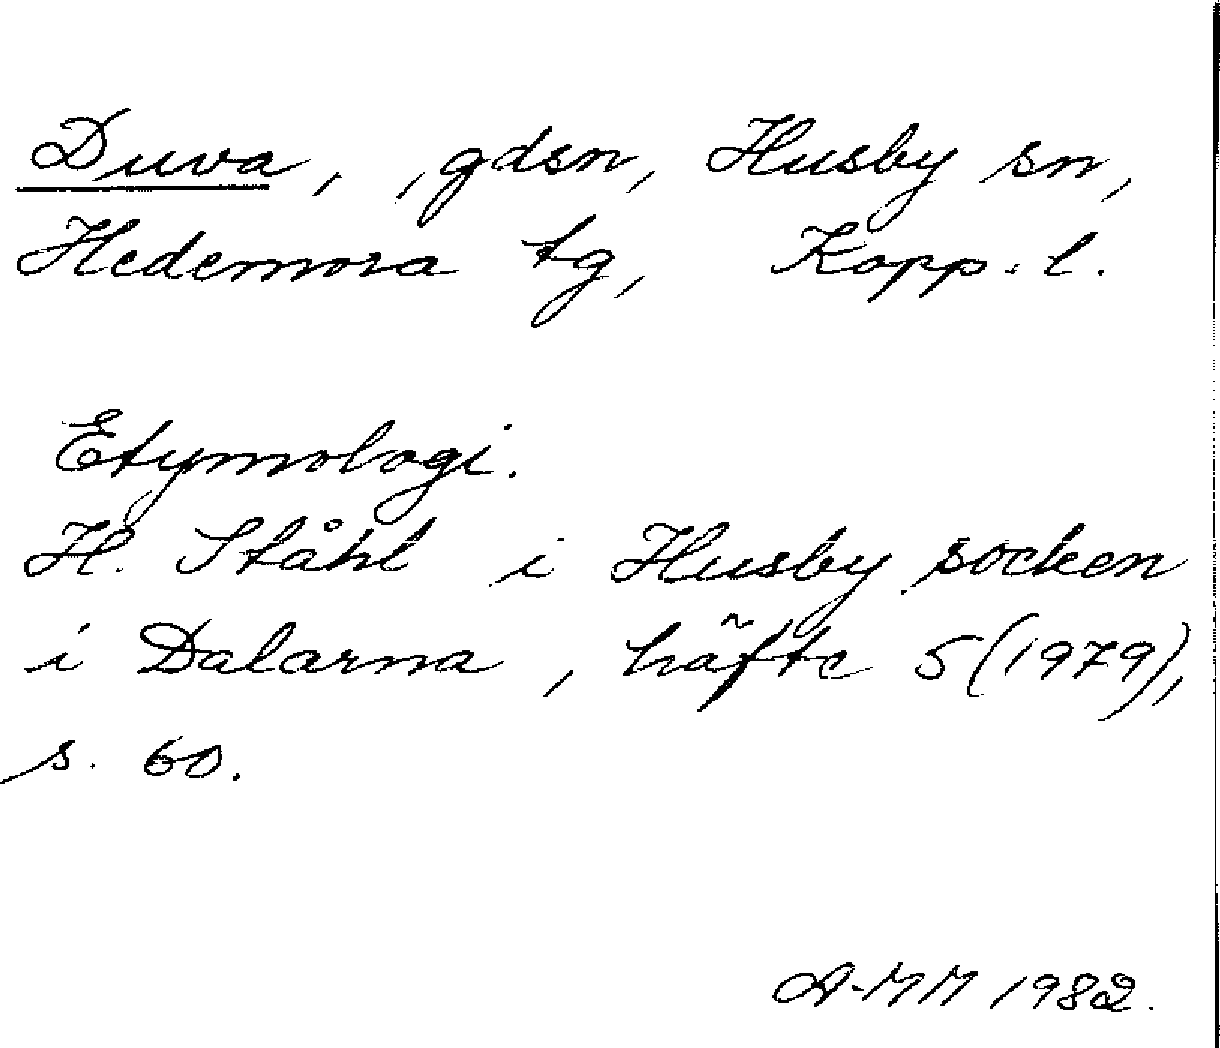 Duva, gdsn, Husby sn,
Hedemora tg, Kopp. l.
Etymologi.
H. Ståhl i Husby socken
i Dalarna, häfte 5 (1979),
s. 60.
A-MM 1982.